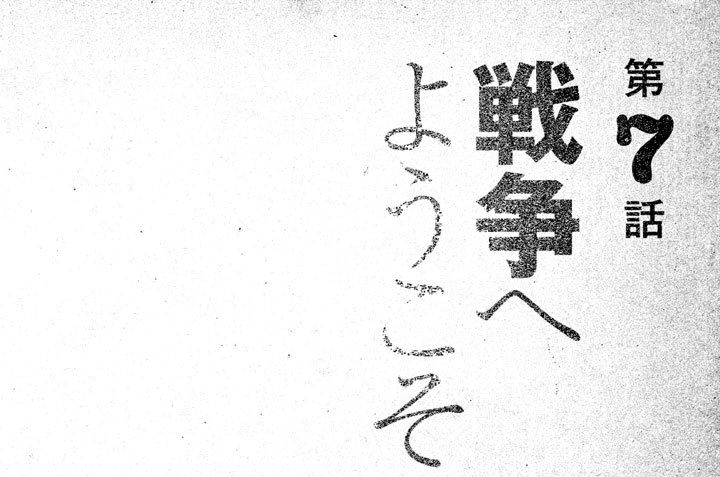 第7話
戦争へ
ようこそ